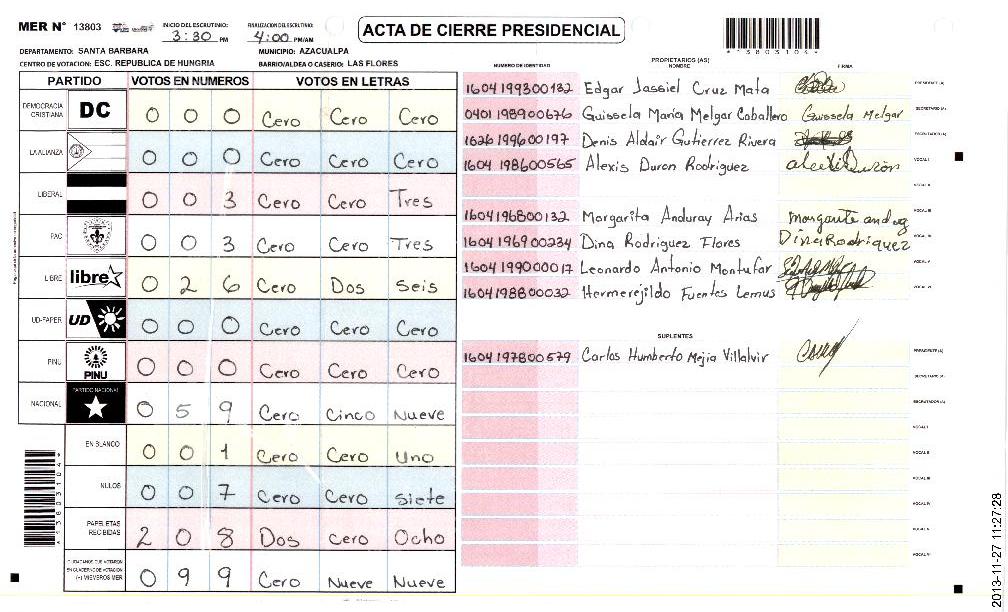 MER N° 13803
INICIO DEL ESCRUTINIO:
3:30 PM
FINALIZACION DEL ESCRUTINIO:
4:00 PM/AM
ACTA DE CIERRE PRESIDENCIAL
*13803104*
DEPARTAMENTO: SANTA BARBARA
MUNICIPIO: AZACUALPA
CENTRO DE VOTACION: ESC. REPUBLICA DE HUNGRIA
BARRIO/ALDEA O CASERIO: LAS FLORES
PARTIDO VOTOS EN NUMEROS VOTOS EN LETRAS
DEMOCRACIA CRISTIANA DC 0 0 0 Cero Cero Cero
LA ALIANZA 0 0 0 Cero Cero Cero
LIBERAL 0 0 3 Cero Cero Tres
PAC 0 0 3 Cero Cero Tres
LIBRE libre 0 2 6 Cero Dos Seis
UD-FAPER UD 0 0 0 Cero Cero Cero
PINU PINU 0 0 0 Cero Cero Cero
NACIONAL PARTIDO NACIONAL 0 5 9 Cero Cinco Nueve
EN BLANCO 0 0 1 Cero Cero Uno
NULOS 0 0 7 Cero Cero Siete
PAPELETAS RECIBIDAS 2 0 8 Dos Cero Ocho
CIUDADANOS QUE VOTARON EN CUADERNO DE VOTACION (+) MIEMBROS MER 0 9 9 Cero Nueve Nueve
*13803104*
PROPIETARIOS (AS)
NUMERO DE IDENTIDAD NOMBRE FIRMA
1604199300132 Edgar Jassiel Cruz Mata PRESIDENTE (A)
0401198900676 Guissela Maria Melgar Caballero Guissela Melgar SECRETARIO (A)
1626199600197 Denis Aldair Gutierrez Rivera ESCRUTADOR (A)
1604198600565 Alexis Duron Rodriguez VOCAL I
VOCAL II
1604196800132 Margarita Anduray Arias VOCAL III
1604196900234 Dina Rodriguez Flores Dina Rodriquez VOCAL IV
1604199000017 Leonardo Antonio Montufar VOCAL V
1604198800032 Hermerejildo Fuentes Lemus VOCAL VI
SUPLENTES
1604197800579 Carlos Humberto Mejia Villalvir PRESIDENTE (A)
SECRETARIO (A)
ESCRUTADOR (A)
VOCAL I
VOCAL II
VOCAL III
VOCAL IV
VOCAL V
VOCAL VI
2013-11-27 11:27:28